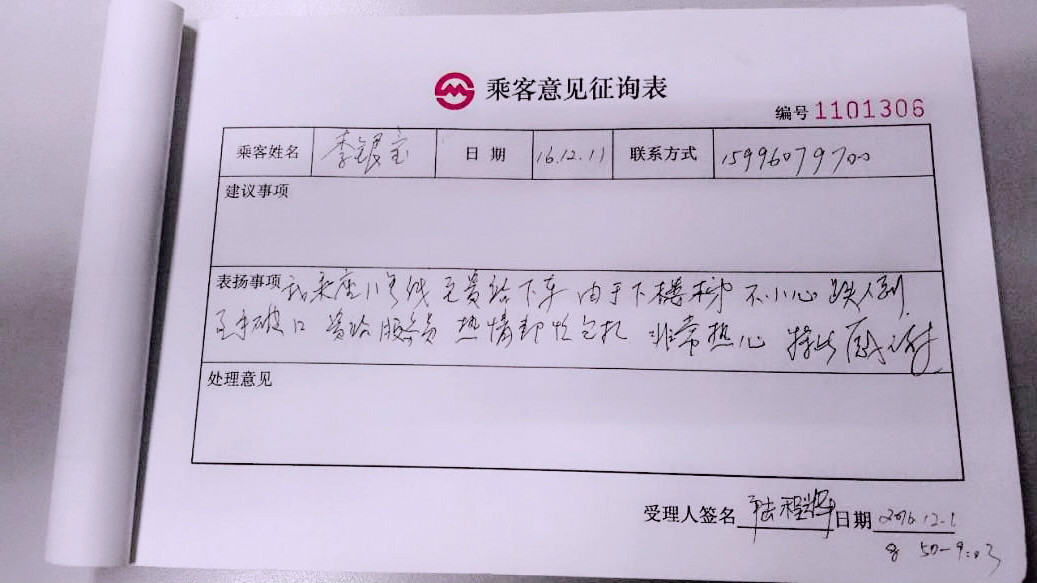 乘客意见征询表
编号 1101306
乘客姓名 李银宝 日期 16.12.11 联系方式 15996079700
建议事项
表扬事项 我乘座11号线 至贵站下车 由于下楼梯 不小心 跌倒
手破口 贵站服务员 热情帮忙包扎 非常热心 特此感谢
处理意见
受理人签名 日期 2016.12.1
8 50-9:03